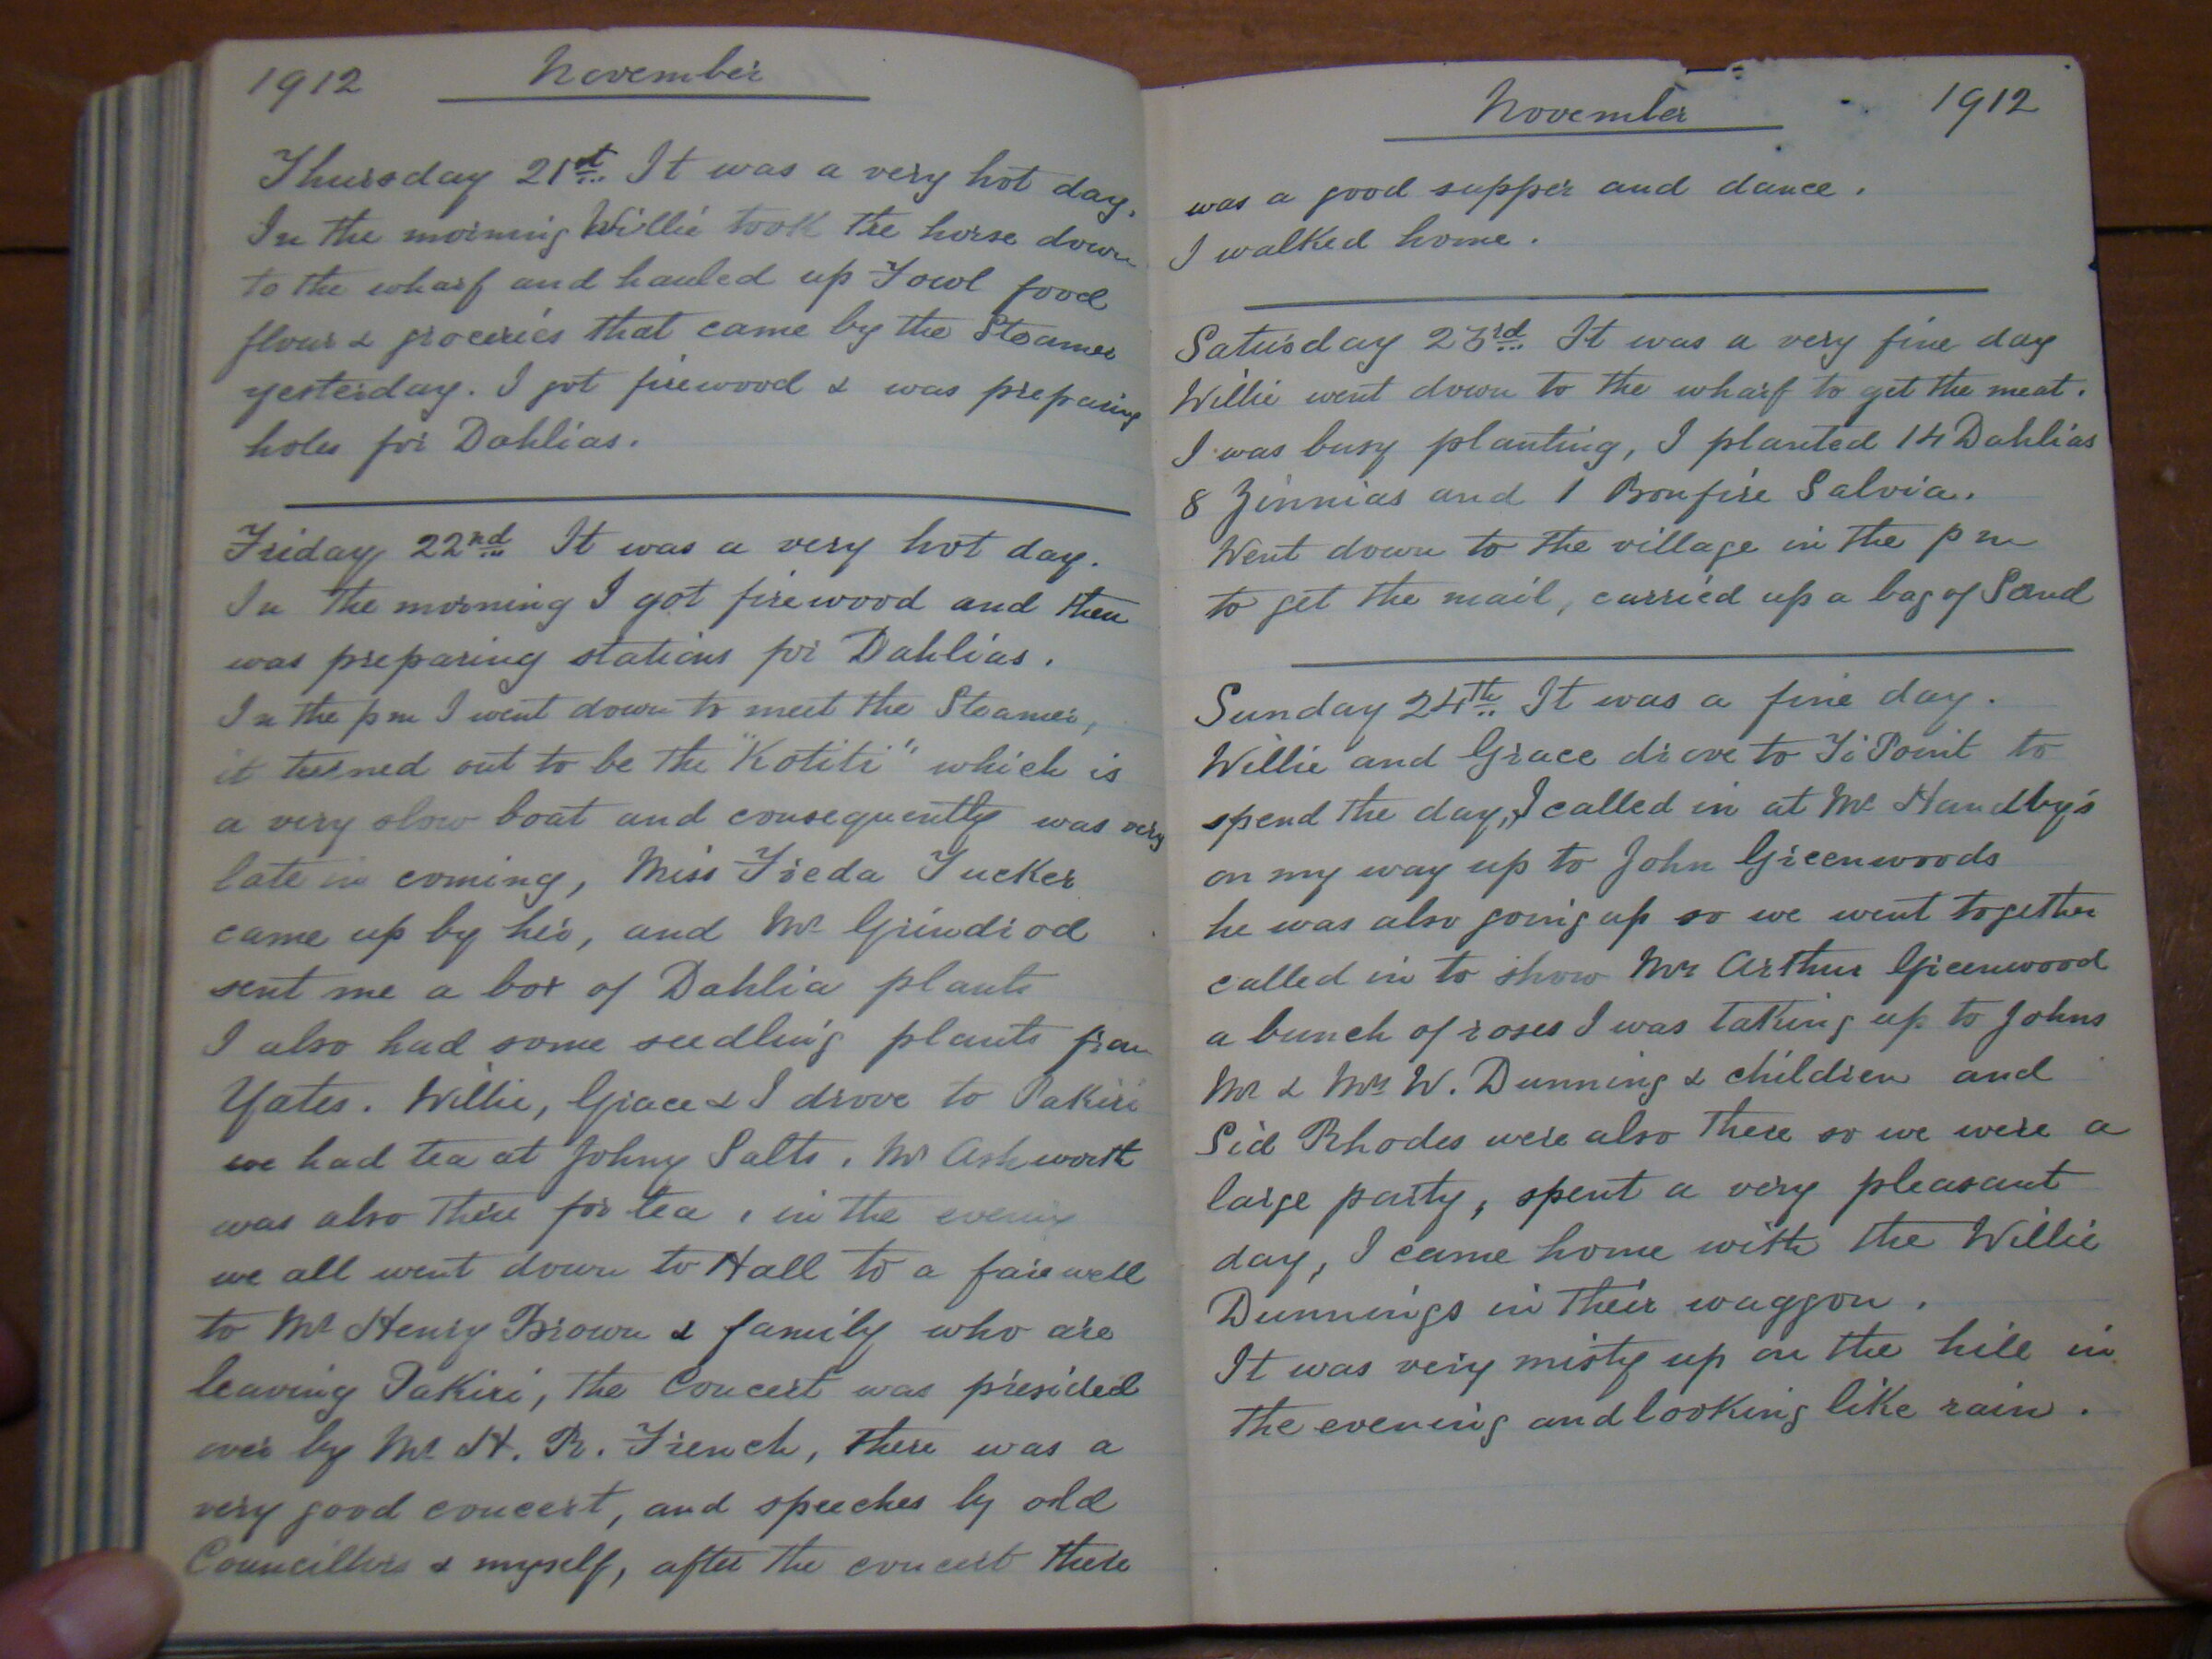 1912 November
Thursday 21st It was a very hot day.
In the morning Willie took the horse down
to the wharf and hauled up Fowl food
flour & groceries that came by the Steamer
yesterday. I got firewood & was preparing
holes for Dahlias.
Friday 22nd It was a very hot day.
In the morning I got firewood and then
was preparing stations for Dahlias.
In the pm I went down to meet the Steamer,
it turned out to be the "Kotiti" which is
a very slow boat and consequently was very
late in coming, Miss Freda Tucker
came up by her, and Mr Grindrod
sent me a box of Dahlia plants
I also had some seedling plants from
Yates. Willie, Grace & I drove to Pakiri
we had tea at Johny Salts. Mr Ashworth
was also there for tea, in the evening
we all went down to Hall to a farewell
to Mr Henry Brown & family who are
leaving Pakiri, the Concert was presided
over by Mr H. R. French, there was a
very good concert, and speeches by old
Councillors & myself, after the concert there
November 1912
was a good supper and dance.
I walked home.
Saturday 23rd It was a very fine day
Willie went down to the wharf to get the meat.
I was busy planting, I planted 14 Dahlias
8 Zinnias and 1 Bonfire Salvia.
Went down to the village in the pm
to get the mail, carried up a bag of Sand
Sunday 24th It was a fine day.
Willie and Grace drove to Ti Point to
spend the day, I called in at Mr Handby's
on my way up to John Greenwoods
he was also going up so we went together
called in to show Mr Arthur Greenwood
a bunch of roses I was taking up to Johns
Mr & Mrs W. Dunning & children and
Sid Rhodes were also there so we were a
large party, spent a very pleasant
day, I came home with the Willie
Dunnings in their waggon.
It was very misty up on the hill in
the evening and looking like rain.